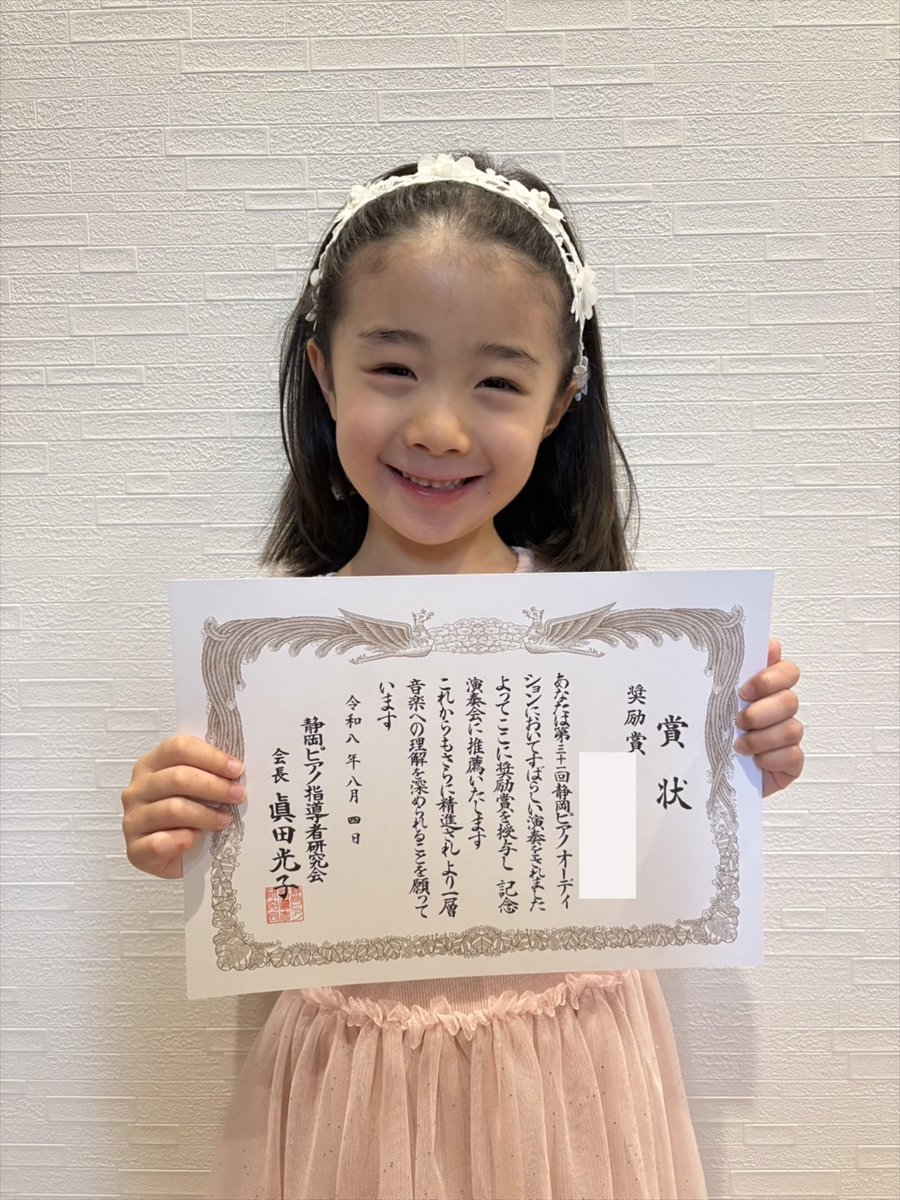 賞状
奨励賞
あなたは第三十一回静岡ピアノオーディ
ションにおいてすばらしい演奏をされました
よってここに奨励賞を授与し 記念
演奏会に推薦いたします
これからもさらに精進され より一層
音楽への理解を深められることを願って
います
令和八年八月四日
静岡ピアノ指導者研究会
会長 眞田光子